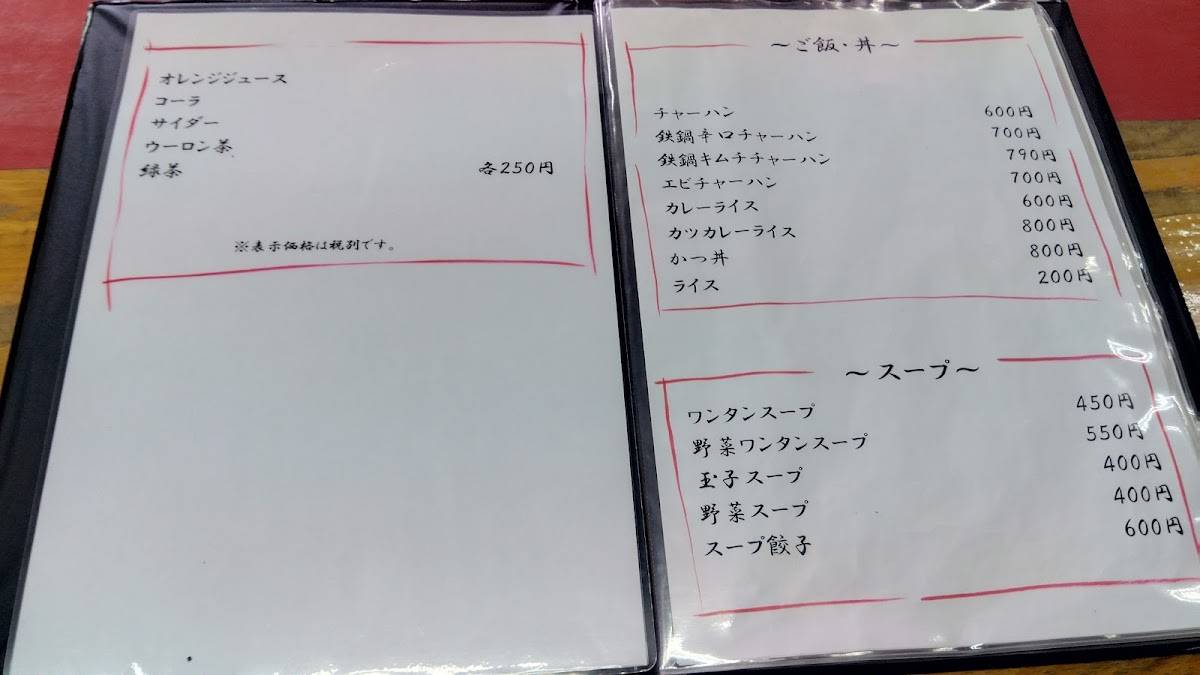 オレンジジュース
コーラ
サイダー
ウーロン茶
緑茶 各250円
※表示価格は税別です。
～ご飯・丼～
チャーハン 600円
鉄鍋辛口チャーハン 700円
鉄鍋キムチチャーハン 790円
エビチャーハン 700円
カレーライス 600円
カツカレーライス 800円
かつ丼 800円
ライス 200円
～スープ～
ワンタンスープ 450円
野菜ワンタンスープ 550円
玉子スープ 400円
野菜スープ 400円
スープ餃子 600円